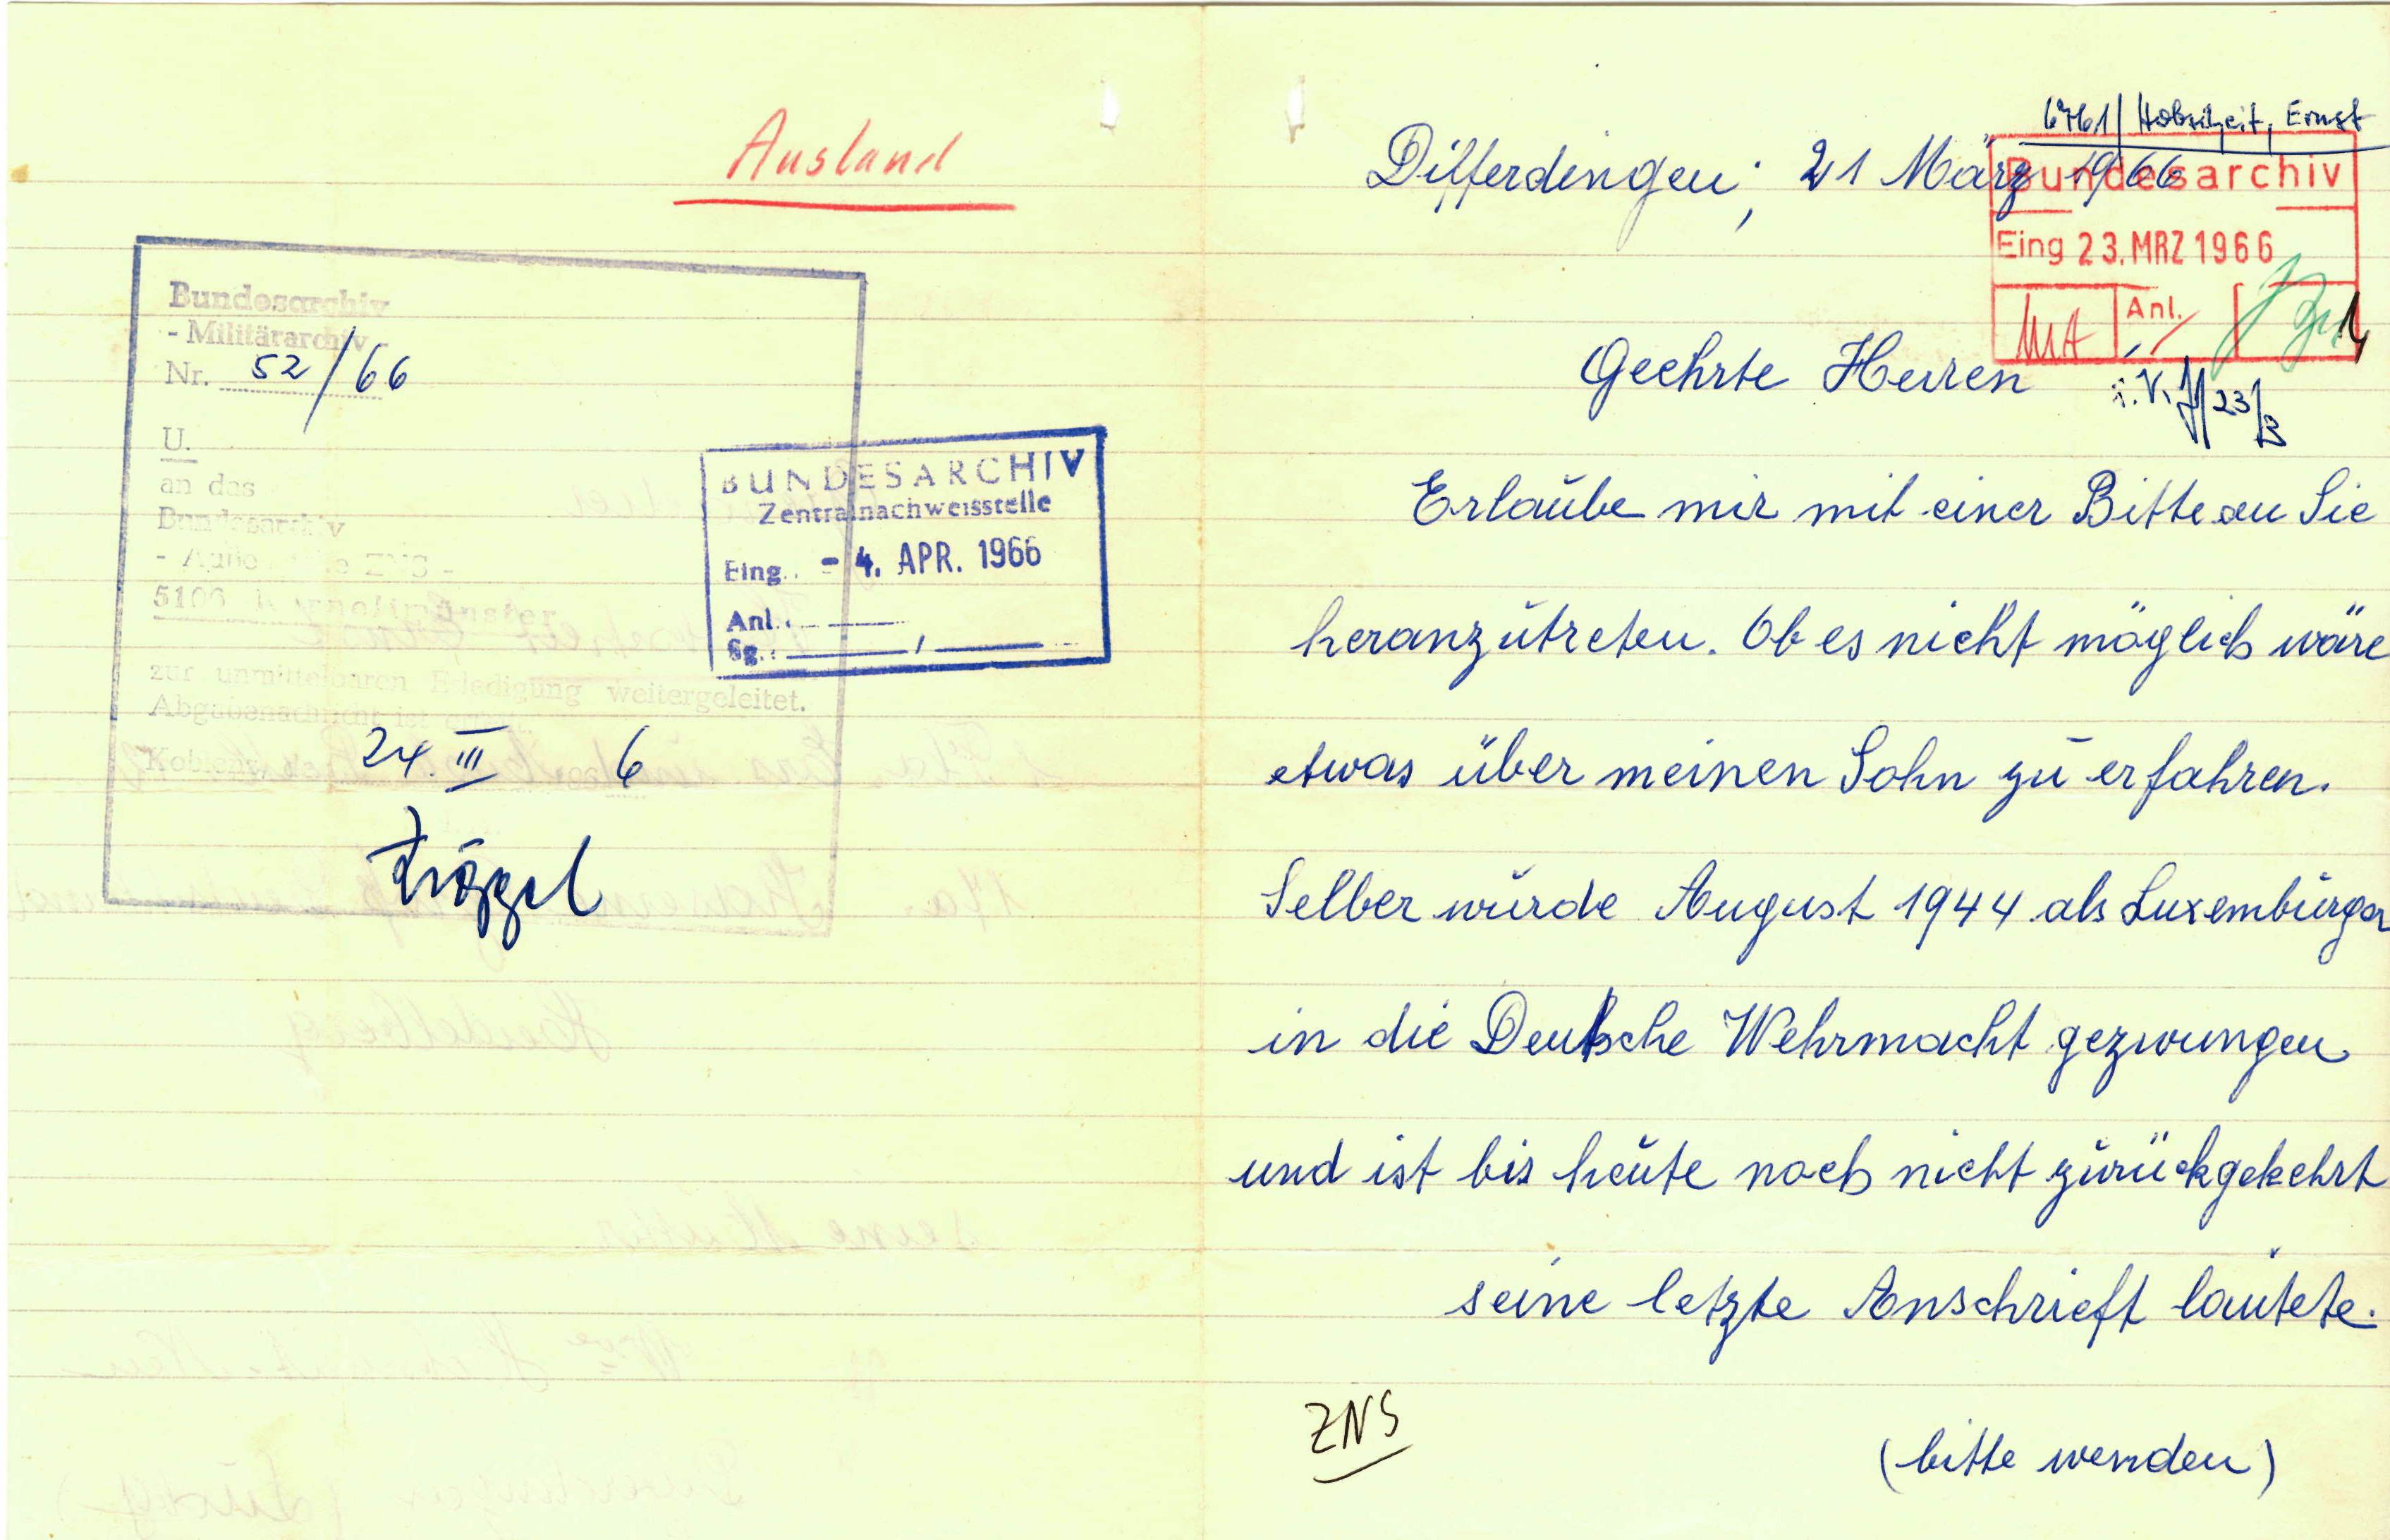 Ausland
Bundesarchiv
- Militärarchiv -
Nr. 52/66
U.
an das
Bundesarchiv
5106 Kornelimünster
zur unmittelbaren Erledigung weitergeleitet.
Abgabenachricht ist
Koblenz, den 24. III 6
BUNDESARCHIV
Zentralnachweisstelle
Eing.. - 4. APR. 1966
Anl.:
Sg.: ,
Ernst
Differdingen, 21 März 1966
Bundesarchiv
Eing 23. MRZ 1966
MA Anl.
i.V. 23/3
Geehrte Herren
Erlaube mir mit einer Bitte an Sie
heranzutreten. Ob es nicht möglich wäre
etwas über meinen Sohn zu erfahren.
Selber wurde August 1944 als Luxemburger
in die Deutsche Wehrmacht gezwungen
und ist bis heute noch nicht zurückgekehrt
seine letzte Anschrieft lautete.
ZNS
(bitte wenden)